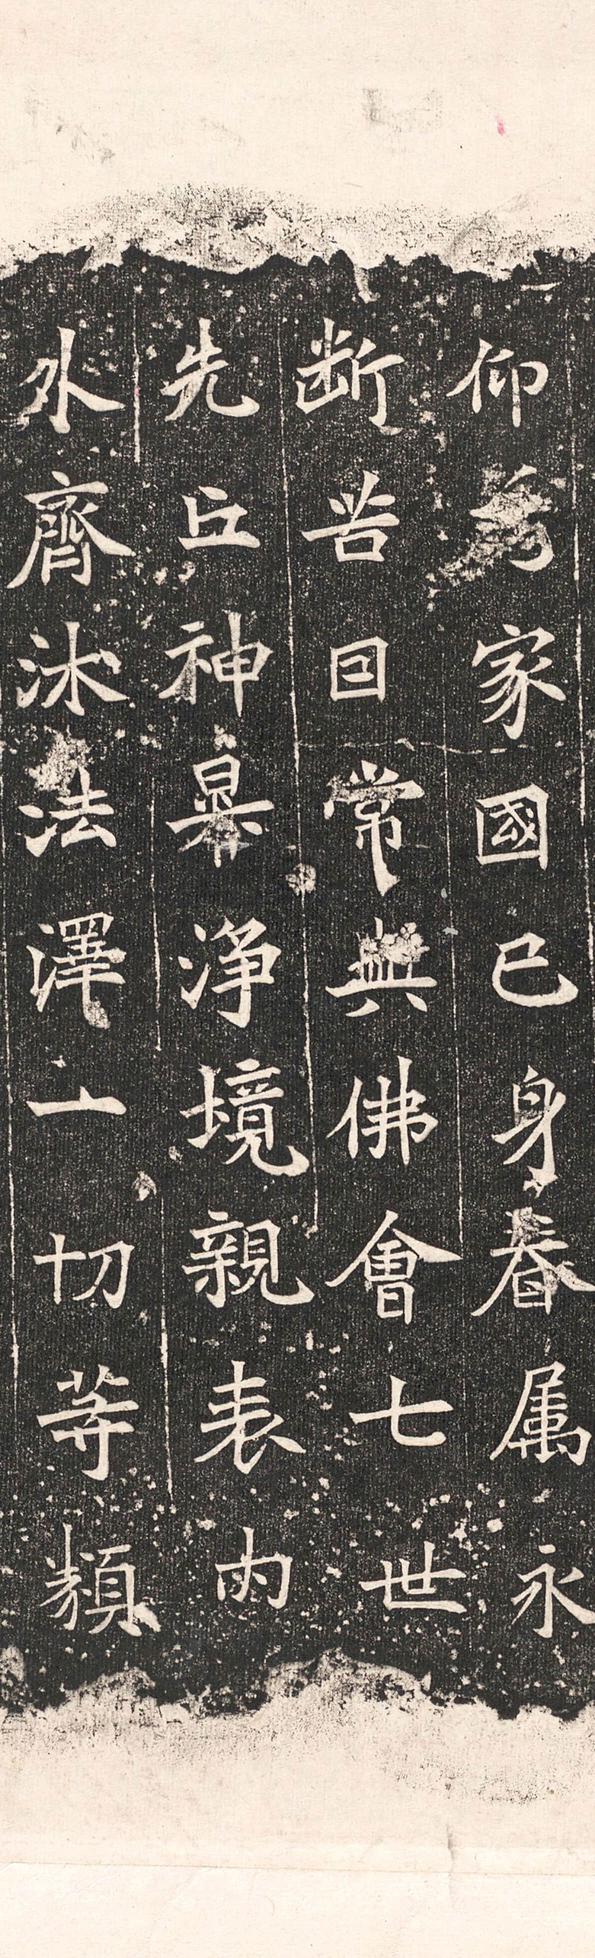 仰为家國已身眷属永
断苦因常與佛會七世
先丘神昇淨境親表内
外齊沐法澤一切等類